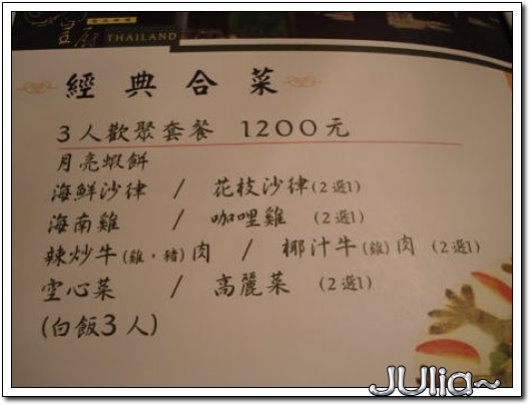 THAILAND
經典合菜
3人歡聚套餐 1200元
月亮蝦餅
海鮮沙律 / 花枝沙律(2選1)
海南雞 / 咖哩雞 (2選1)
辣炒牛(雞·豬)肉 / 椰汁牛(雞)肉 (2選1)
空心菜 / 高麗菜 (2選1)
(白飯3人)
JUlia~